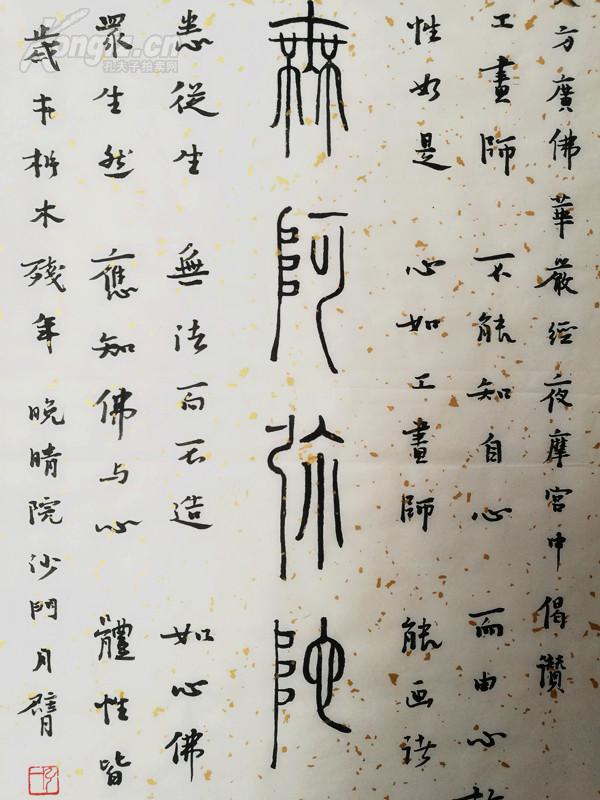 方廣佛華嚴經夜摩宮中偈讚
工畫師 不能知自心 而由心
性如是 心如工畫師 能画诸
無阿弥陀
悉從生 無法而不造 如心佛
眾生然 應知佛与心 體性皆
歲在析木殘年 晚晴院沙門月臂
Kongfz.cn
孔夫子拍卖网